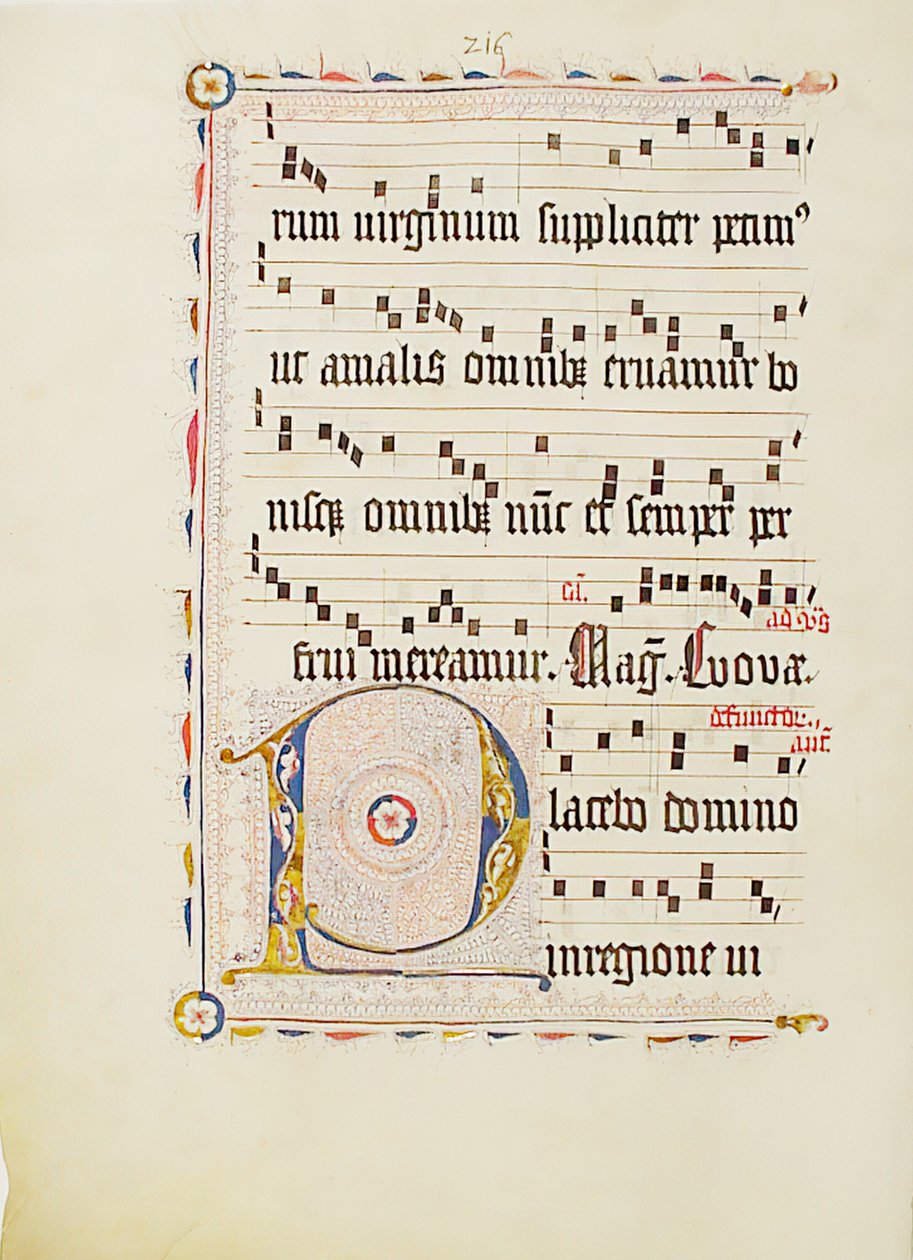 216
rum uirginum suppliciter petimꝰ
ut a malis omnibꝫ eruamur bo
nisqꝫ omnibꝫ nūc et semper per
frui mereamur. Mag̅. Euouæ.
Placebo domino
in regione ui